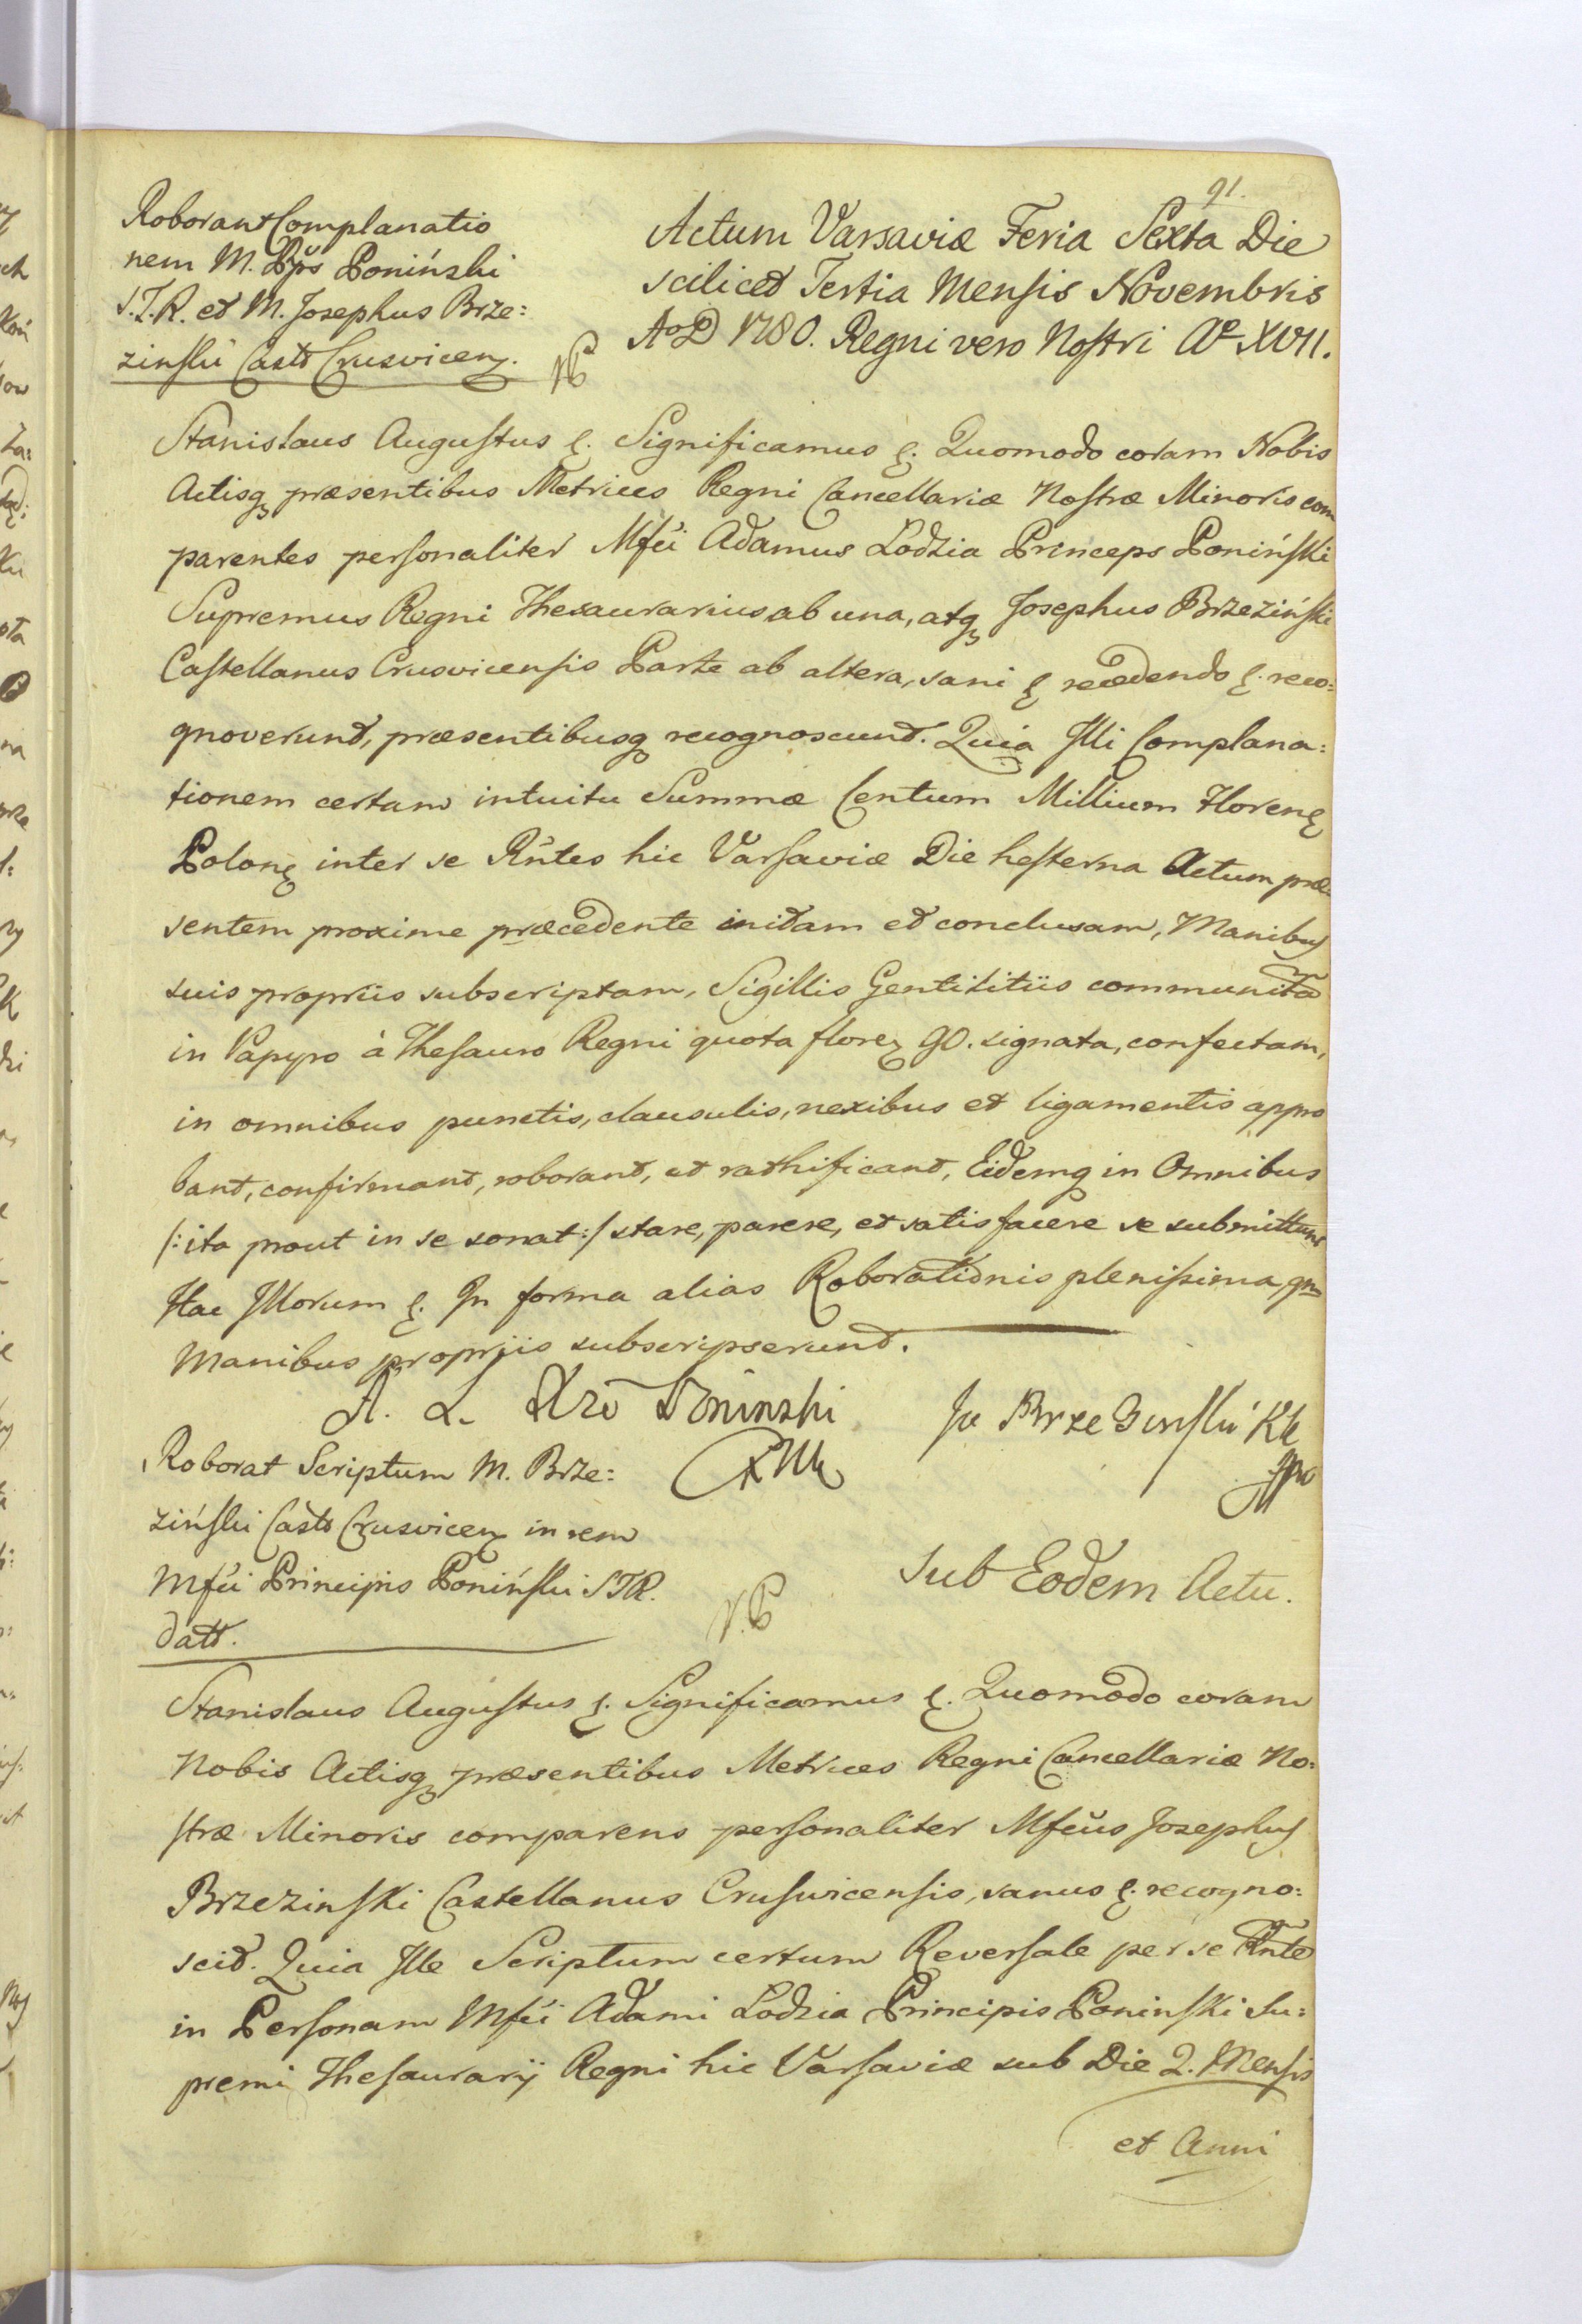 91.
Roborant Complanatio
nem M. Pp̃s Poniński
S.T.R. et M. Josephus Brze:
ziński Castt Crusvicen.
Actum Varsaviæ Feria Sexta Die
scilicet Tertia Mensis Novembris
AoD 1780. Regni vero Nostri Ao XVII.
Stanislaus Augustus ę. Significamus ę. Quomodo coram Nobis
Actisq præsentibus Metrices Regni Cancellariæ Nostræ Minoris com
parentes personaliter Mfci Adamus Lodzia Princeps Poniński
Supremus Regni Thesaurarius ab una, atq Josephus Brzeziński
Castellanus Crusvicensis Parte ab altera, sani ę recedendo ę. reco:
gnoverunt, præsentibusq recognoscunt. Quia Illi Complana:
tionem certam intuitu Summæ Centum Millium Florenę
Polonę inter se Rñtes hic Varsaviæ Die hesterna Actum præ:
sentem proxime præcedente initam et conclusam, Manibus
suis propriis subscriptam, Sigillis Gentilitiis communitã
in Papyro à Thesauro Regni quota floreę 90. signata, confectam,
in omnibus punctis, clausulis, nexibus et ligamentis appro
bant, confirmant, roborant, et rathificant, Eidemq in Omnibus
/: ita prout in se sonat :/ stare, parere, et satisfacere se submittunt
Hac Illorum ę. In forma alias Roborationis plenissima, qm
Manibus propriis subscripserunt.
A. Ł. Xże Poninski
PWK
Jo Brzezinski KK
mpo
Roborat Scriptum M. Brze:
ziński Castt Crusvicen in rem
Mfci Principis Poniński STR.
datt.
Sub Eodem Actu.
Stanislaus Augustus ę. Significamus ę. Quomodo coram
Nobis Actisq præsentibus Metrices Regni Cancellariæ No:
stræ Minoris comparens personaliter Mfcus Josephus
Brzezinski Castellanus Crusvicensis, sanus ę. recogno:
scit. Quia Ille Scriptum certum Reversale per se Rñte
in Personam Mfci Adami Lodzia Principis Poninski Su:
premi Thesaurarij Regni hic Varsaviæ sub Die 2. Mensis
et Anni